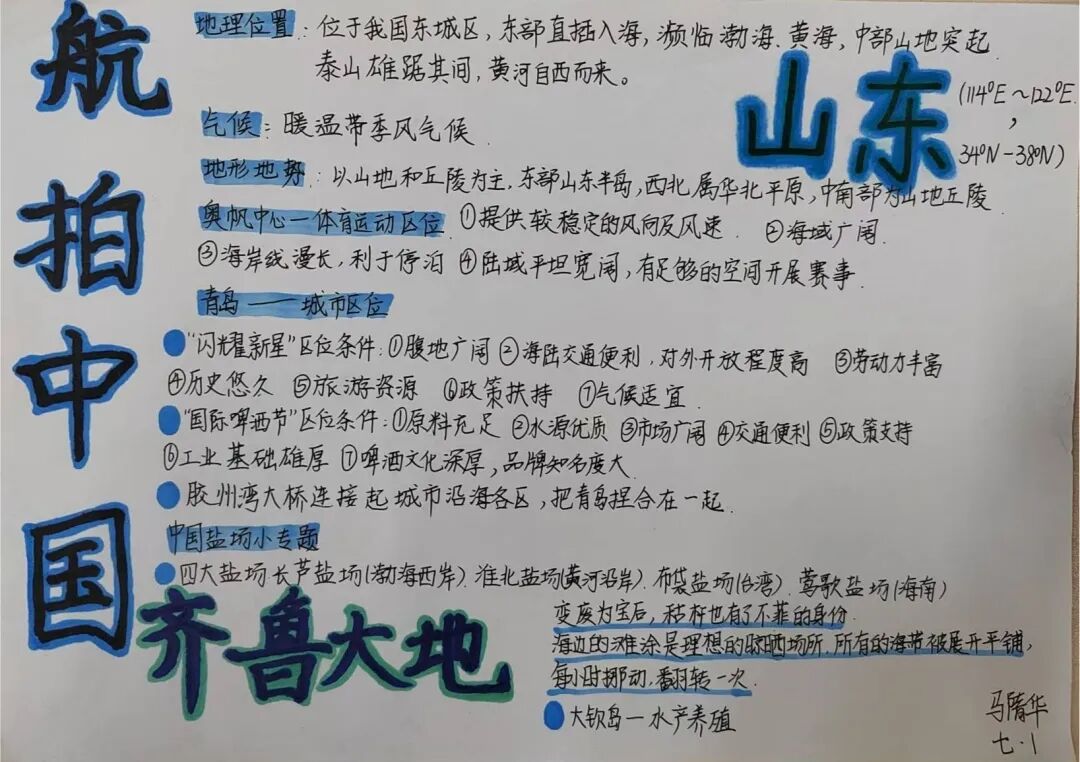 航拍中国
地理位置：位于我国东城区，东部直插入海，濒临渤海、黄海，中部山地突起
泰山雄踞其间，黄河自西而来。
山东
(114°E～122°E
，
34°N－38°N)
气候：暖温带季风气候
地形地势：以山地和丘陵为主，东部山东半岛，西北属华北平原，中南部为山地丘陵
奥帆中心—体育运动区位 ①提供较稳定的风向及风速 ②海域广阔
③海岸线漫长，利于停泊 ④陆域平坦宽阔，有足够的空间开展赛事
青岛——城市区位
“闪耀新星”区位条件：①腹地广阔 ②海陆交通便利，对外开放程度高 ③劳动力丰富
④历史悠久 ⑤旅游资源 ⑥政策扶持 ⑦气候适宜
“国际啤酒节”区位条件：①原料充足 ②水源优质 ③市场广阔 ④交通便利 ⑤政策支持
⑥工业基础雄厚 ⑦啤酒文化深厚，品牌知名度大
胶州湾大桥连接起城市沿海各区，把青岛捏合在一起
中国盐场小专题
四大盐场长芦盐场(渤海西岸) 淮北盐场(黄河沿岸) 布袋盐场(台湾) 莺歌盐场(海南)
齐鲁大地
变废为宝后，秸秆也有了不菲的身份
海边的滩涂是理想的晾晒场所，所有的海带被展开平铺，
每小时挪动，翻转一次
大钦岛—水产养殖
马隋华
七·1